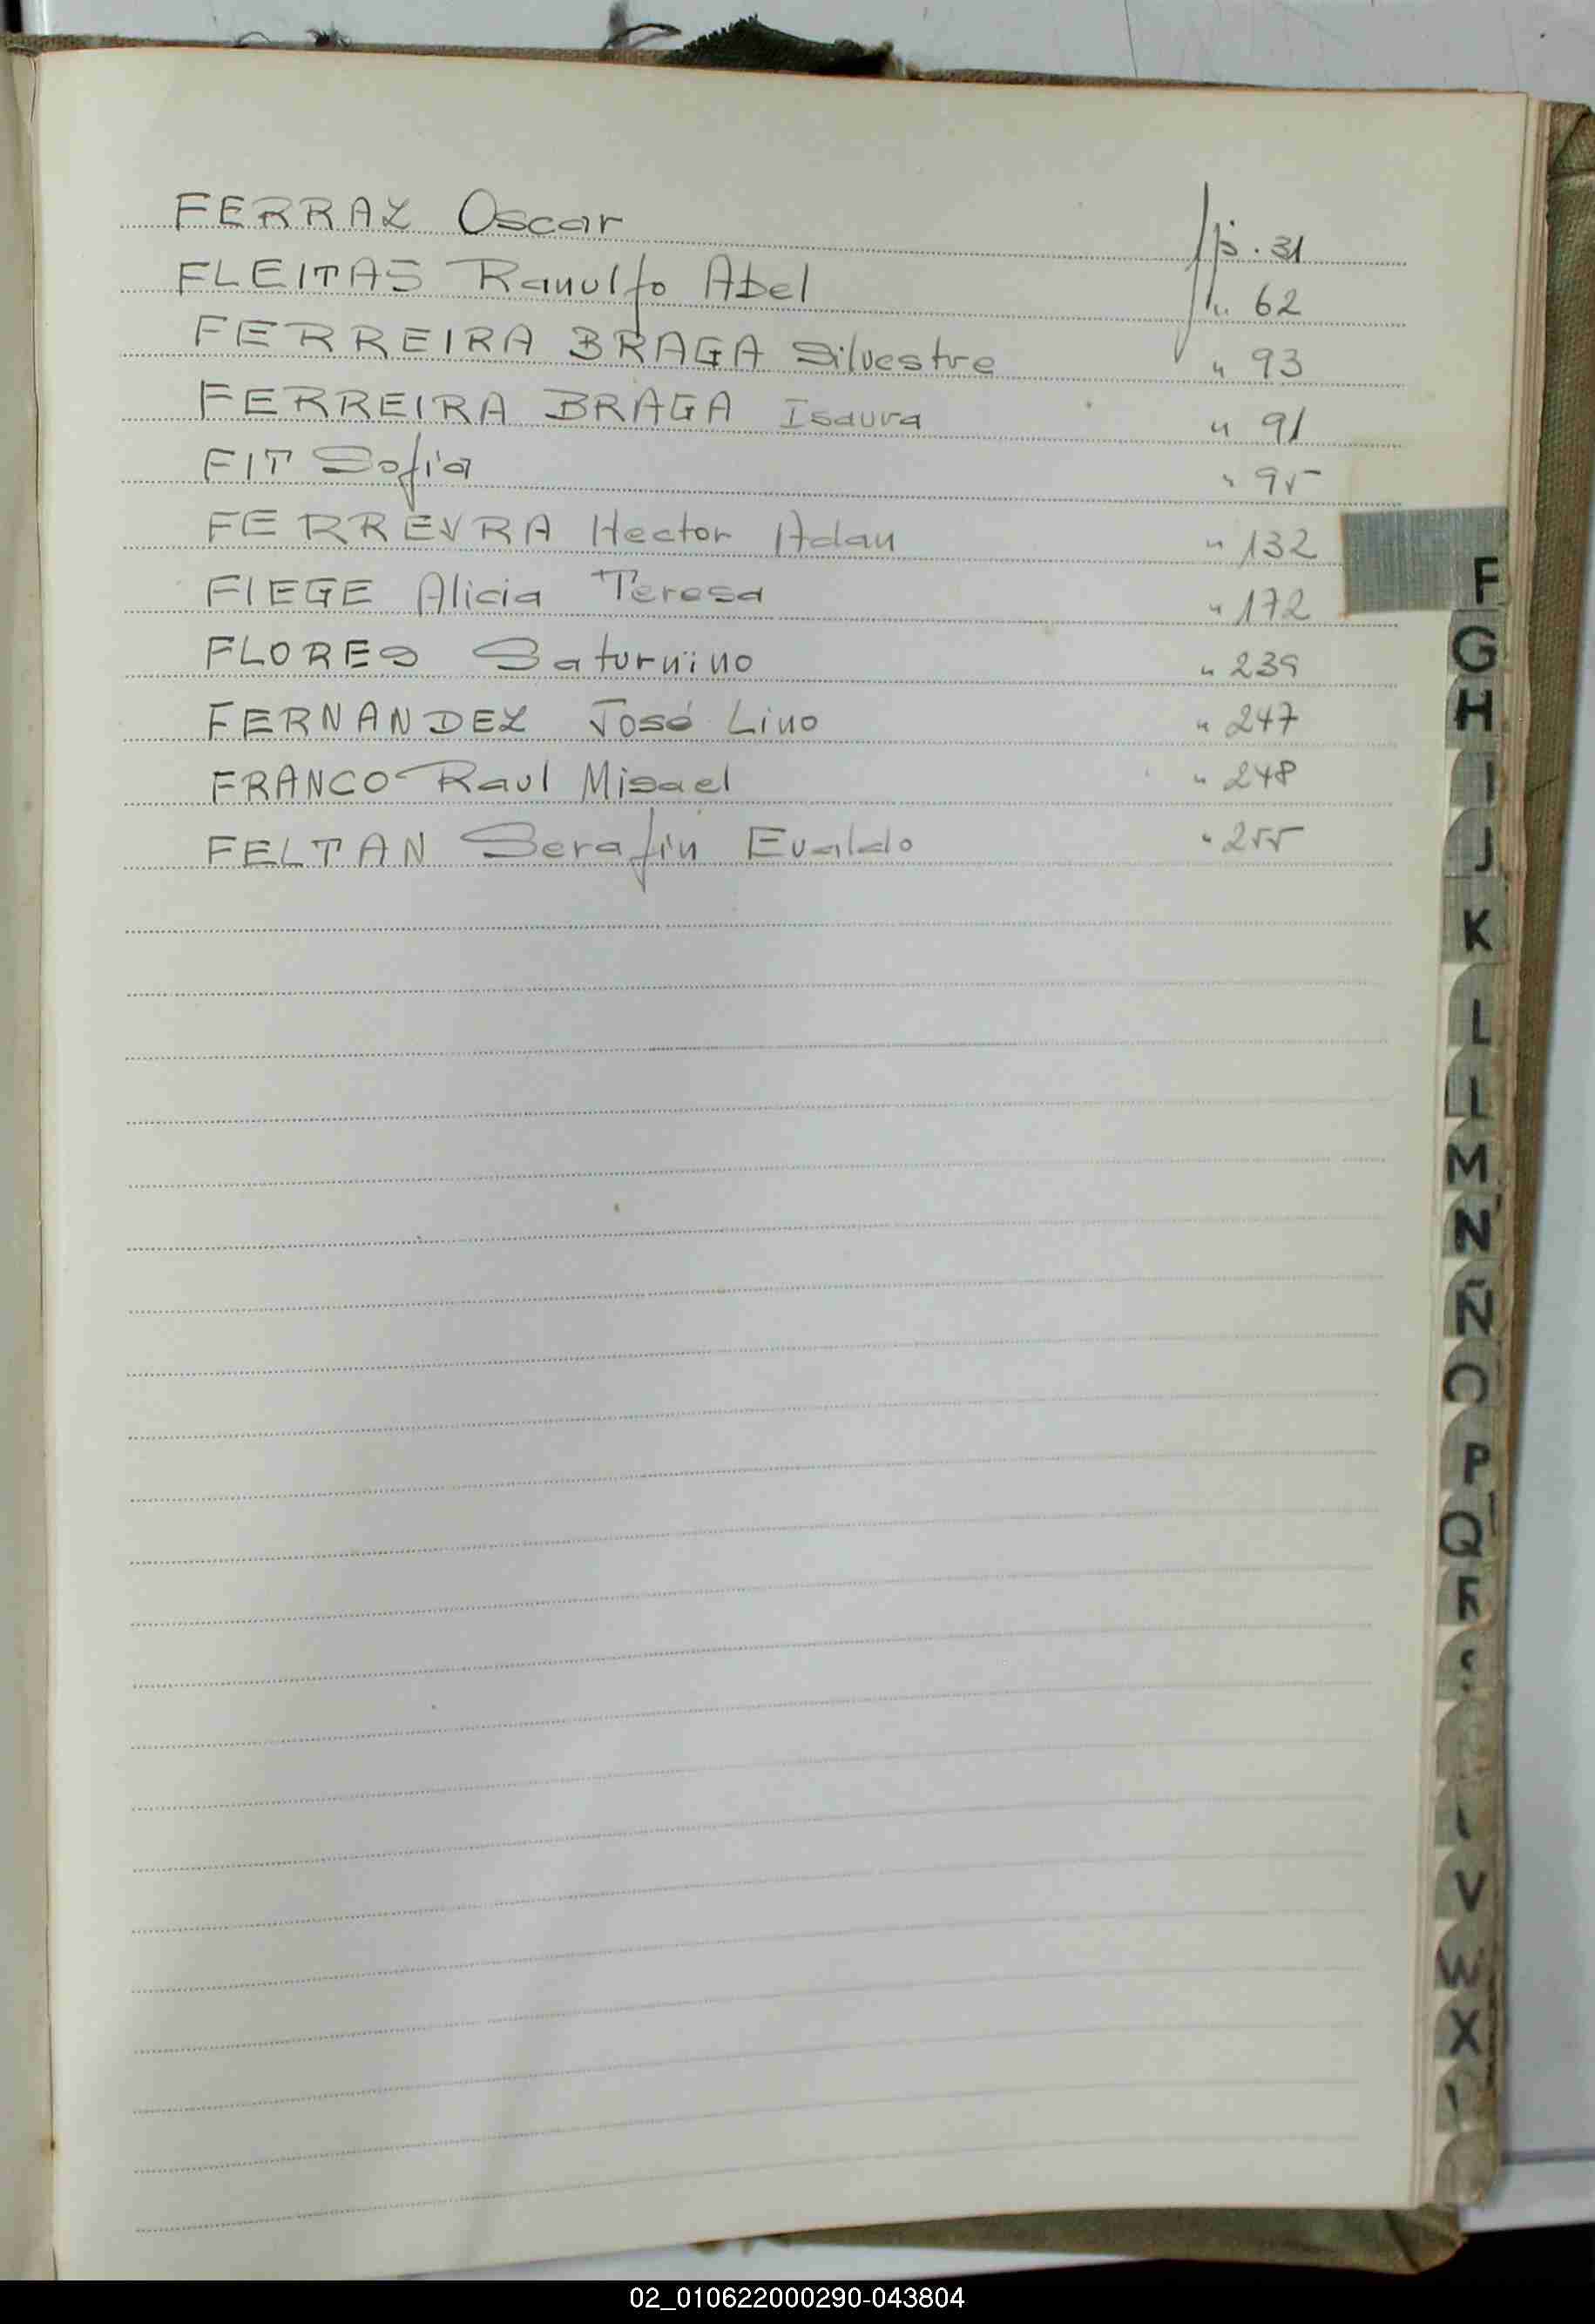 FERRAZ Oscar fjs. 31
FLEITAS Ranulfo Abel " 62
FERREIRA BRAGA Silvestre " 93
FERREIRA BRAGA Isaura " 91
FIT Sofia " 95
FERREYRA Hector Adan " 132
FIEGE Alicia Teresa " 172
FLORES Saturnino " 239
FERNANDEZ José Lino " 247
FRANCO Raul Misael " 248
FELTAN Serafin Evaldo " 255
F
G
H
I
J
K
L
L
M
N
Ñ
O
P
Q
R
V
W
X
02_010622000290-043804